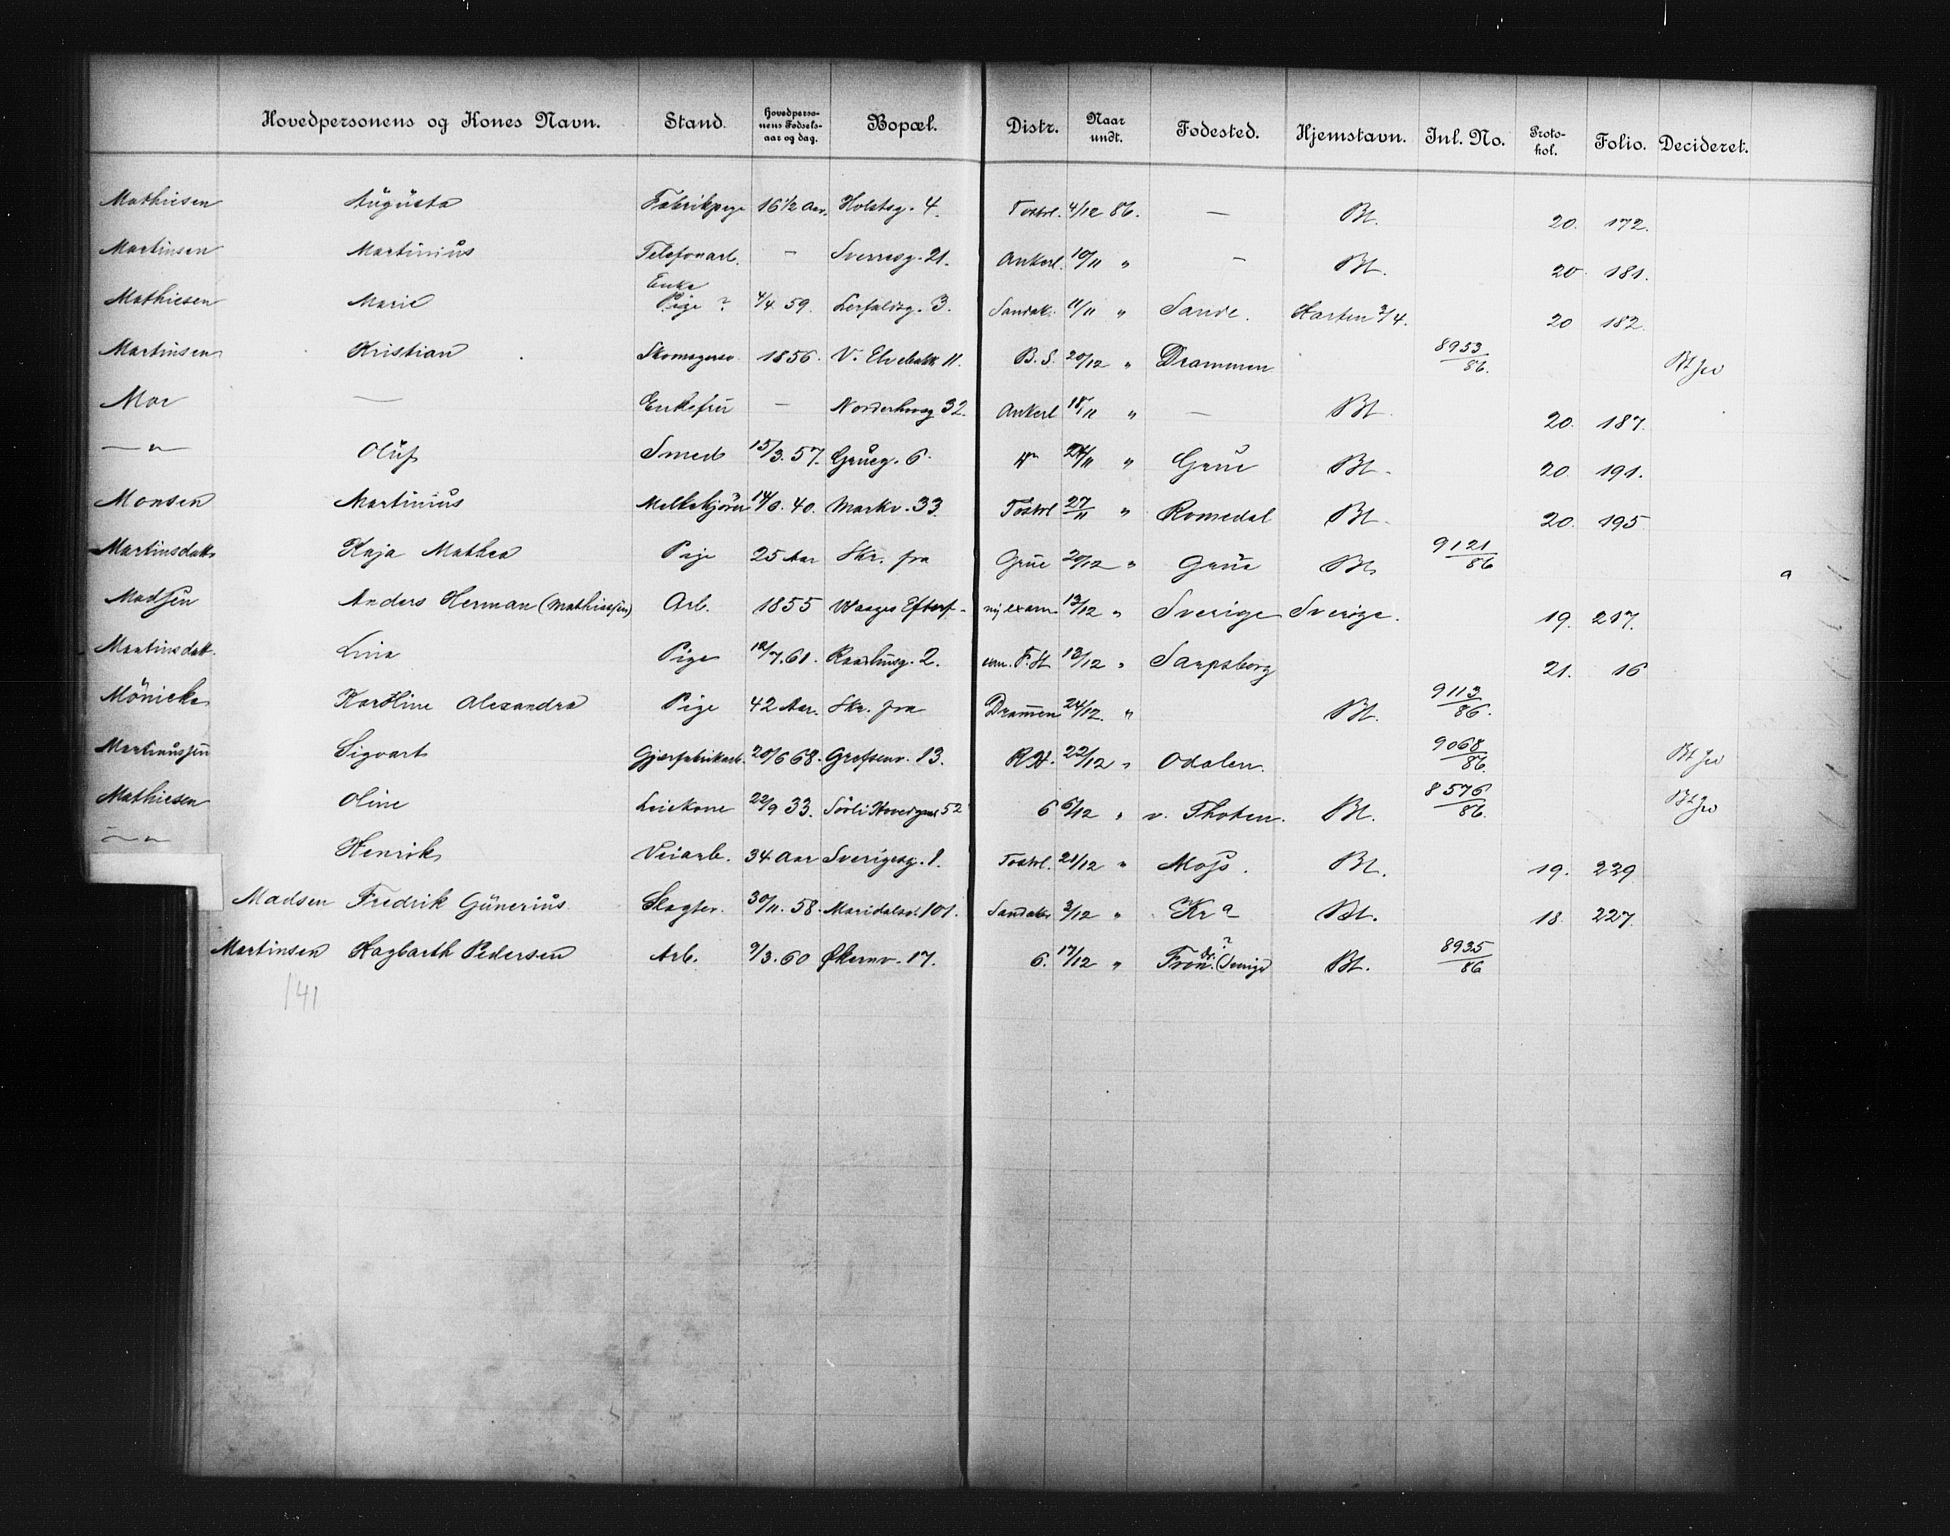 Hovedpersonens og Kones Navn. Stand. Hovedpersonens Fødselsaar og dag. Bopæl. Distr. Naar undt. Fødested. Hjemstavn. Inl. No. Protokol. Folio. Decideret.
Mathiesen Augusta Fabrikpige 16 1/2 Aar. Holstsg. 4. 4/12 86. — Bt. 20. 172.
Martinsen Martinius Telefonarb. — Sverresg. 21. Ankerl. 10/11 " — Bt. 20 181.
Mathiesen Marie Enke Pige ? 4/4 59. Lerfaldsg. 3. Sandak. 11/11 " Sande. 20 182.
Martinsen Kristian 1856. V. Elvebakk 11. B. S. 20/12 " Drammen 8953/86.
Moe — Enkefru — Norderhovsg 32. Ankerl 18/11 " — Bt. 20. 187.
—"— Oluf Smed 15/3. 57. Grueg. 6. 24/11 " Grue Bt. 20. 191.
Monsen Martinius Melkekjører 40. Markv. 33. 27/11 " Romedal Bt. 20. 195
Martinsdatr Kaja Mathea Pige 25 Aar Skr. fra Grue 20/12 " Grue Bt. 9121/86
Madsen Anders Herman (Mathiessen) Arb. 1855 Waages Efterf. 13/12 " Sverige Sverige. 19. 217.
Martinsdatr. Lina Pige 12/7. 61. Raadhusg. 2. 13/12 " Sarpsborg 21. 16
Mönicke Karoline Alexandra Pige 42 Aar. Skr. fra Drammen 24/12. " Bt. 9113/86.
Martinussen Sigvart Gjærfabrikarb. 20/6 68. Grefsenv. 13. 22/12 " Odalen. 9068/86
Mathiesen Oline Leiekone 22/9 33. 6 6/12 " v. Thoten. Bt. 8576/86.
—"— Henrik Veiarb. 34 Aar Sverigesg. 1. 21/12 " Moss. Bt. 19. 229
Madsen Fredrik Gunerius Slagter. 30/11. 58. Maridalsv. 101. Sandaker 3/12 " Kra Bt. 18. 227.
Martinsen Hagbarth Pedersen Arb. 9/3. 60 Økernv. 17. 6. 17/12 " Fron. (Sverige ? Bt. 8935/86
141